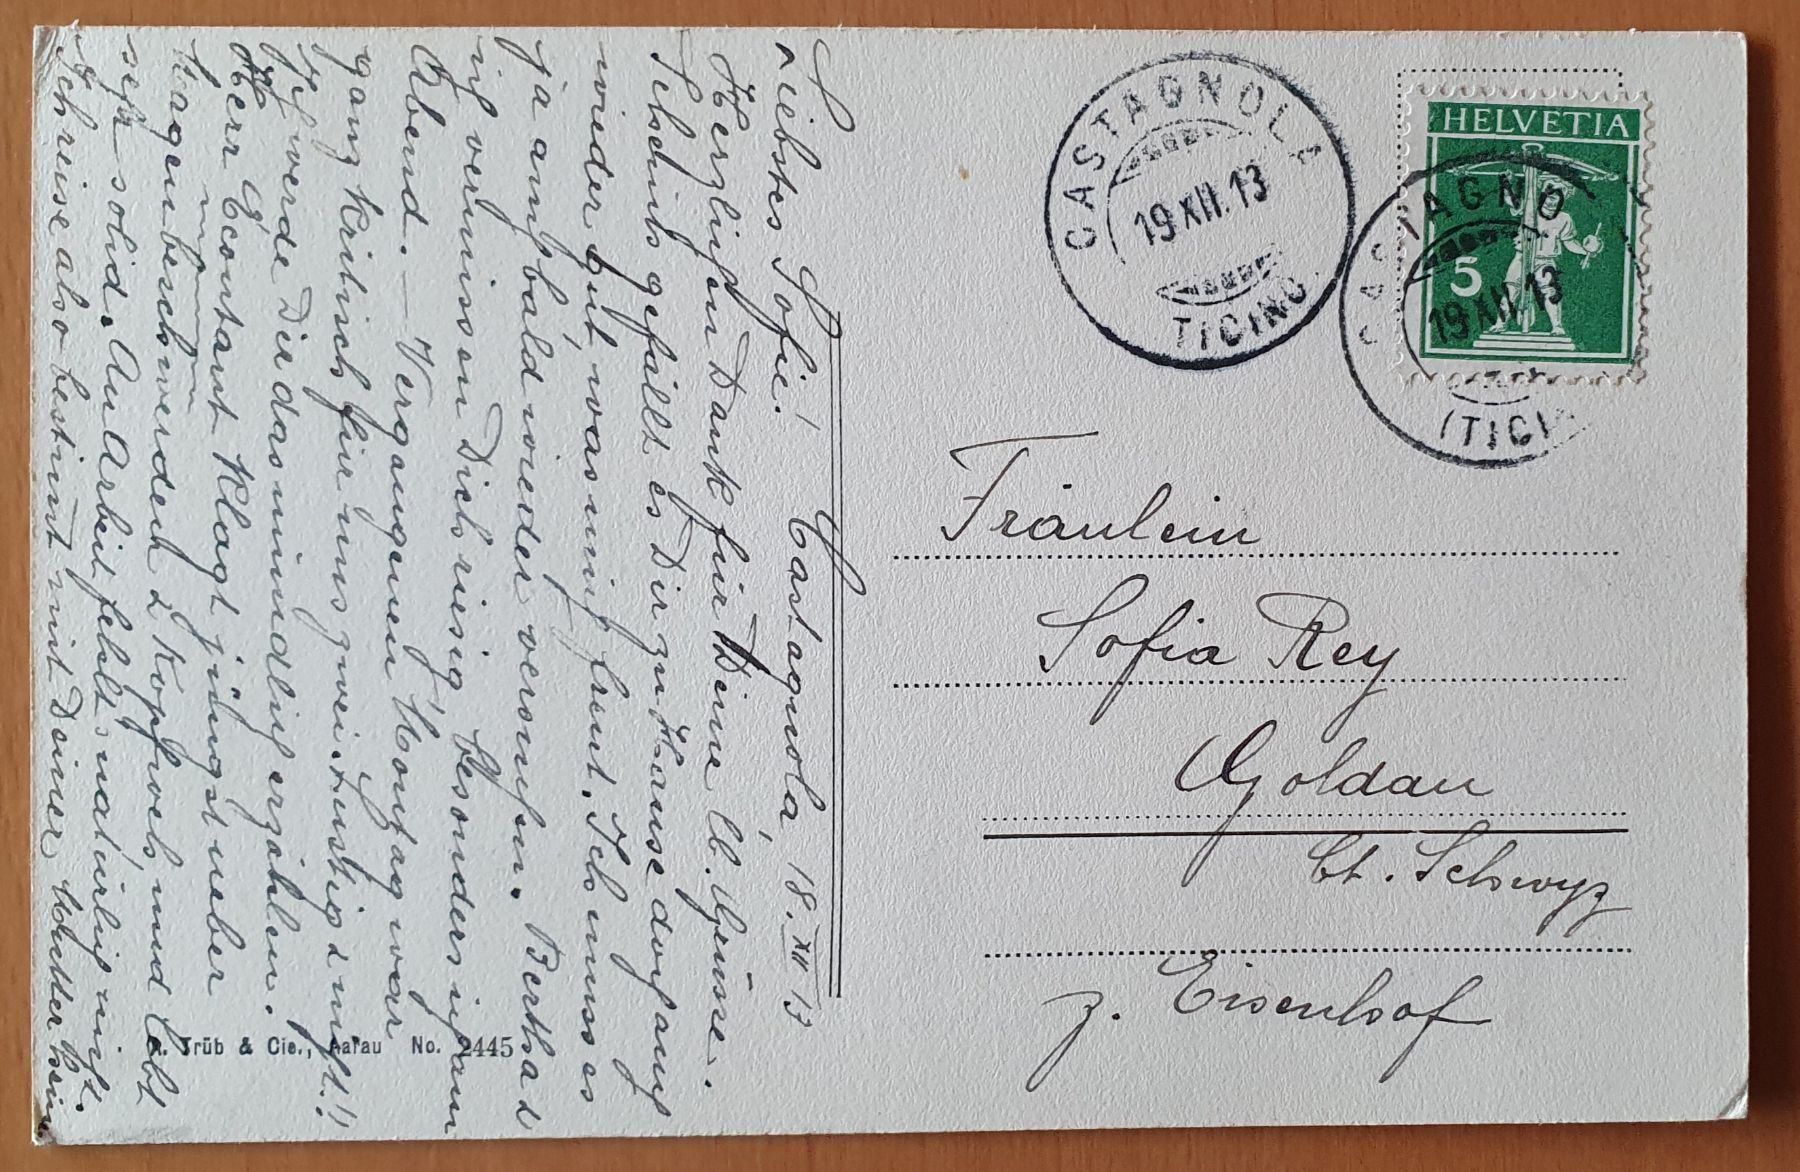 Castagnola, 18. XII 13
Liebstes Sofie!
Herzlichen Dank für Deine lb. Grüsse.
Scheints gefällt es Dir zu Hause doch auch
wieder gut, was mich freut. Ich muss es
ja auch bald wieder versuchen. Bertha &
ich vermissen Dich riesig besonders ich am
Abend. — Vergangenen Montag war
ganz kritisch für uns zwei. Lustig & nicht!!
Ich werde Dir das mündlich erzählen.
Herr Econtant klagt jüngst ueber
Magenbeschwerden & Kopfweh, und lebt
sehr solid. An Arbeit fehlt's natürlich nicht.
Ich reise also bestimt mit Deiner
A. Trüb & Cie., Aarau No. 2445
CASTAGNOLA
19.XII.13
TICINO
HELVETIA
5
CASTAGNO
19.XII.13
(TICI
Fräulein
Sofia Rey
Goldau
Ct. Schwyz
z. Eisenhof